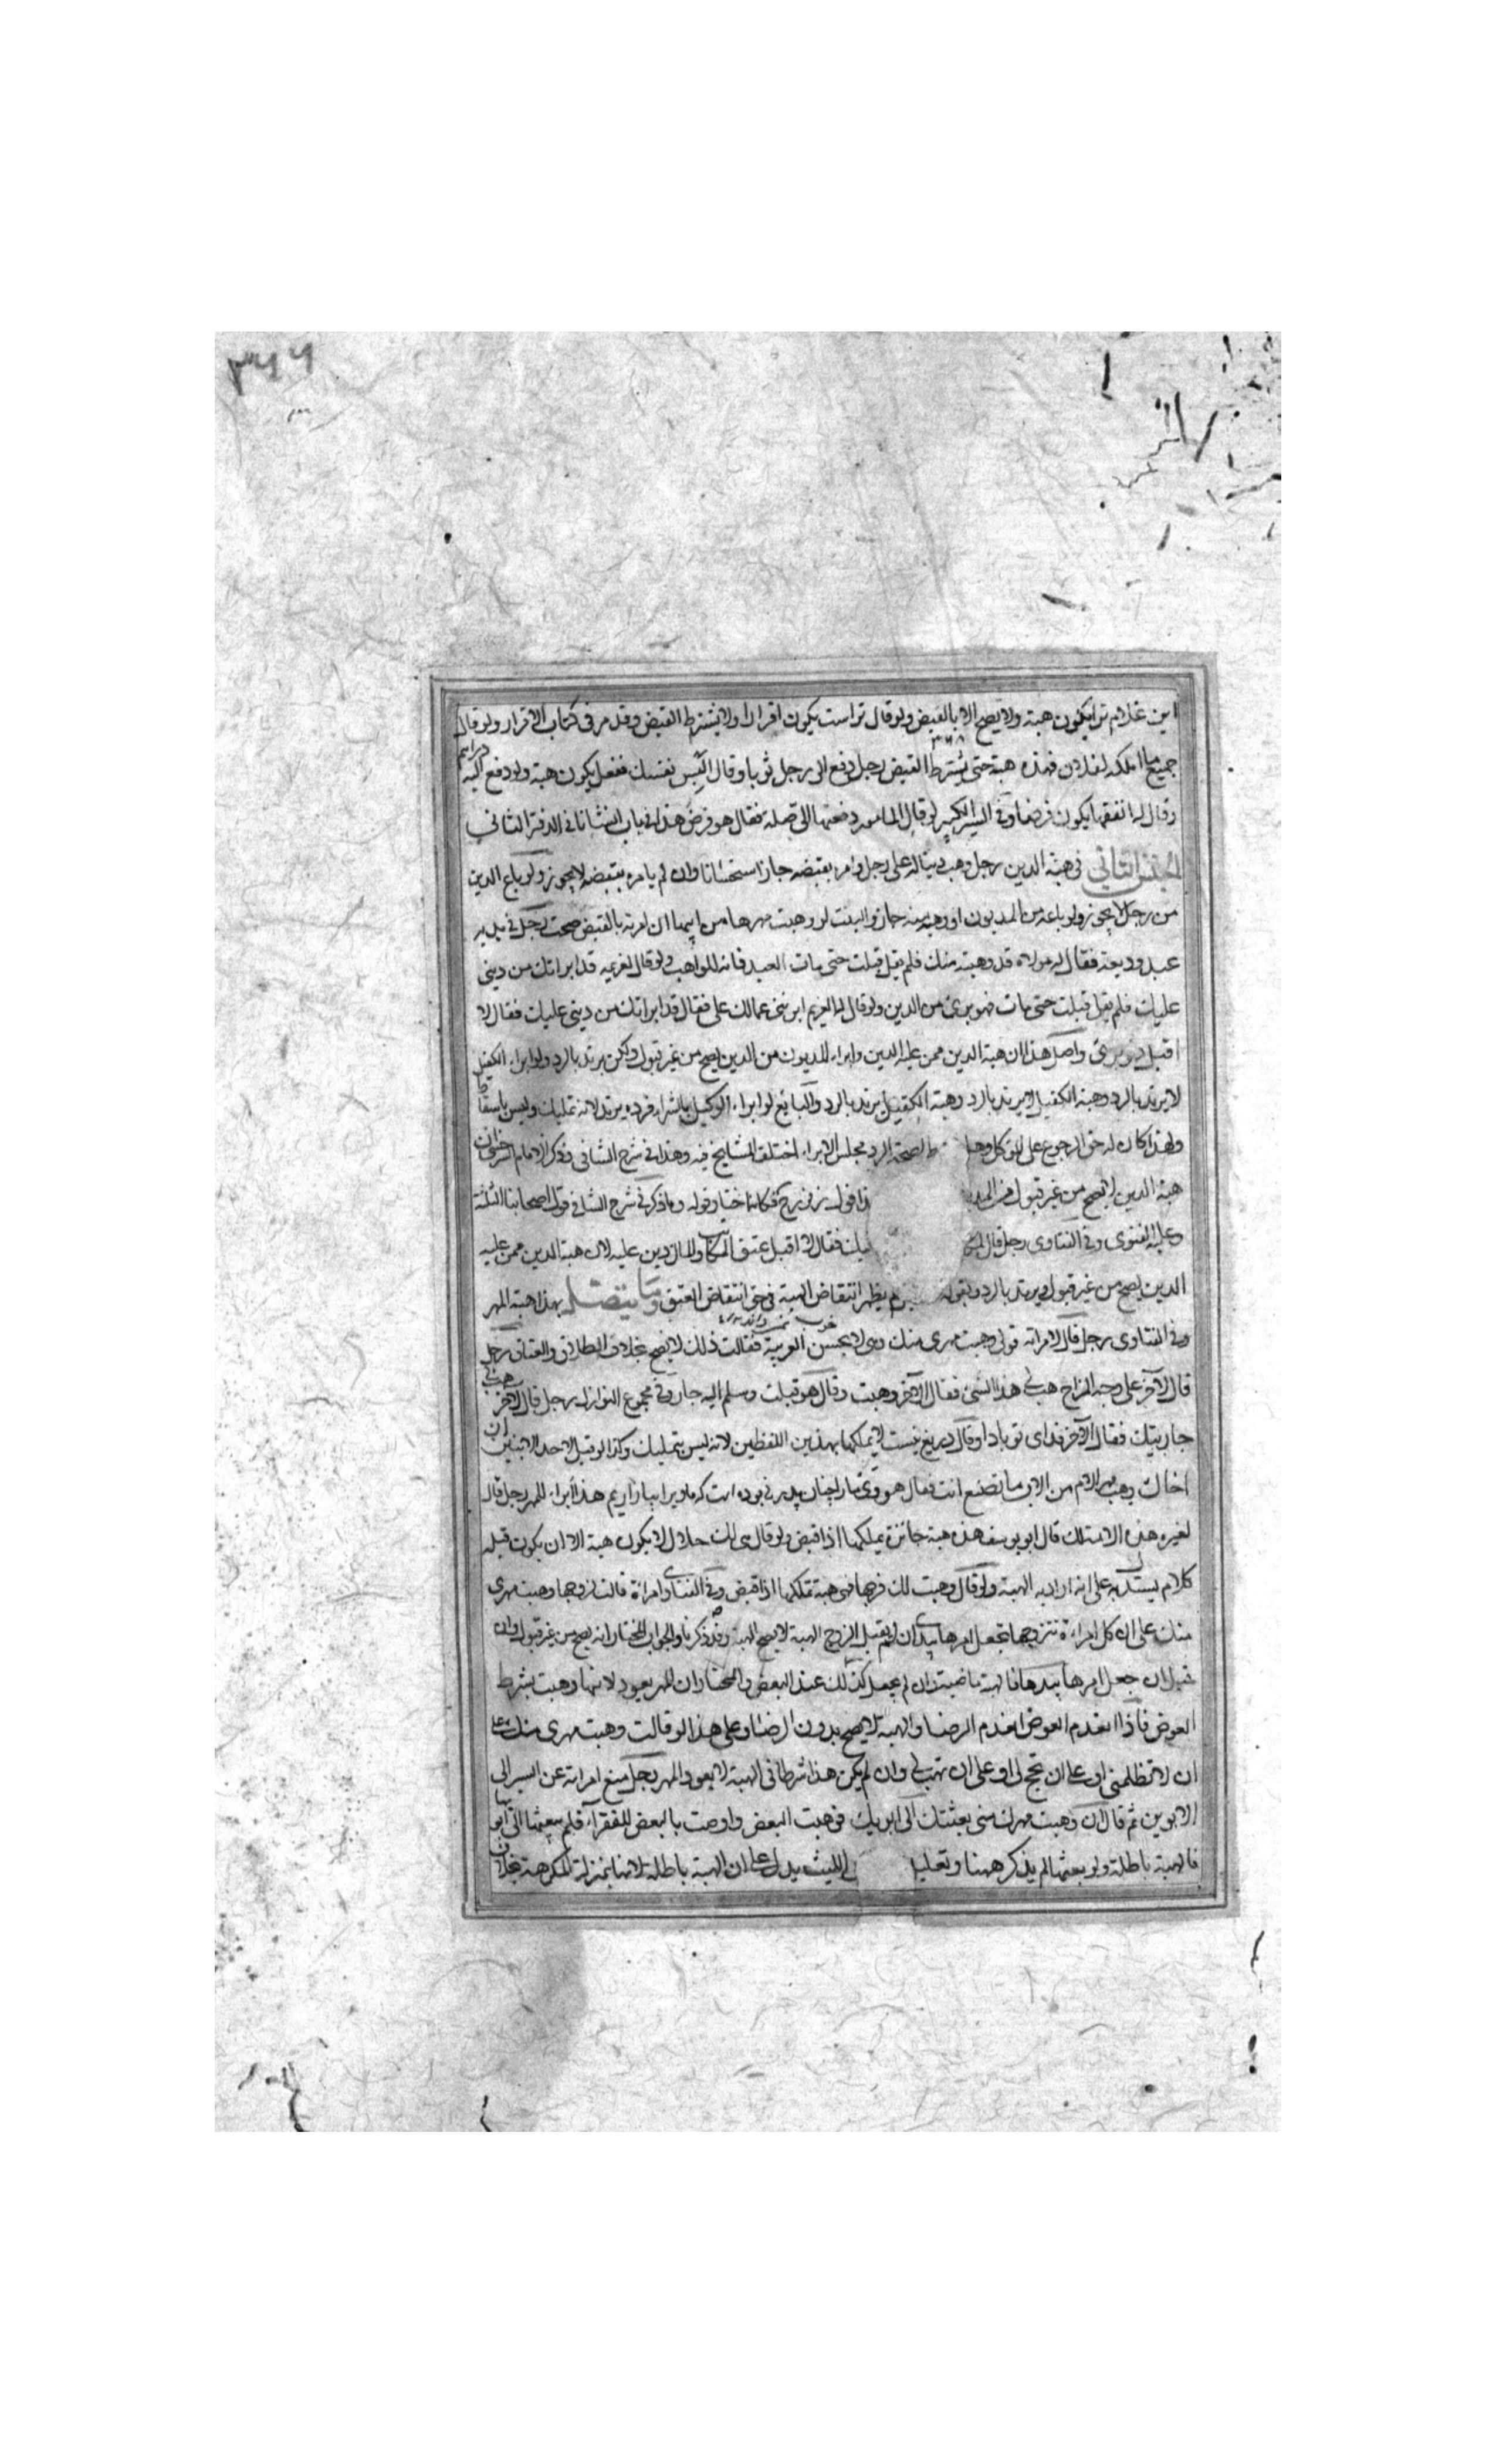 ٣٦٦
اين غلام ترا يكون هبة ولا يصح الا بالقبض ولو قال تراست يكون اقرارا ولا يشترط القبض وقد مر فى كتاب الاقرار ولو قال
جميع ما املكه لفلان فهذه هبة حتى يشترط القبض رجل دفع الى رجل ثوبا وقال البس نفسك ففعل يكون هبة ولو دفع اليه دراهم
وقال له انفقها يكون قرضا وفى السير الكبير لو قال المامور دفعتها الى صلة فقال هو قرض هذا فى باب انشانا فى الدفتر الثانى
الجنس الثانى فى هبة الدين رجل وهب دينا له على رجل وامره بقبضه جاز استحسانا وان لم يامره بقبضه لا يجوز ولو باع الدين
من رجل لا يجوز ولو باعه من المديون او وهبه منه جاز والبنت لو وهبت مهرها من ابيها ان امرته بالقبض صحت رجل فى يديه
عبد وديعة فقال له مولاه قد وهبته منك فلم يقل قبلت حتى مات العبد فانه للواهب ولو قال لغريمه قد ابراتك من دينى
عليك فلم يقل قبلت حتى مات فهو برئ من الدين ولو قال له الغريم ابرئنى عمالك على فقال قد ابراتك من دينى عليك فقال لا
اقبل فهو برئ واصل هذا ان هبة الدين ممن عليه الدين وابراء المديون من الدين يصح من غير قبول ولكن يرتد بالرد ولو ابراء الكفيل
لا يرتد بالرد وهبة الكفيل يرتد بالرد والبائع لو ابراء الوكيل بالشراء فرده يرتد لانه تمليك وليس باسقاط
ولهذا كان له حق الرجوع على الموكل وهل لصحة الرد مجلس الابراء اختلف المشايخ فيه وهذا فى شرح الشافى وذكر الامام السرخسى ان
هبة الدين لا يصح من غير قبول من المد قول زفر رح فكانه اختار قوله وما ذكر فى شرح الشافى قول اصحابنا الثلثة
وعليه الفتوى وفى الفتاوى رجل قال فقال لا اقبل عتق المكاتب والمال دين عليه لان هبة الدين ممن عليه
الدين يصح من غير قبول ويرتد بالرد وبقوله لم يظهر انتقاض الهبة فى حق انتقاض العتق وما يتصل بهذا هبة المهر
وفى الفتاوى رجل قال لامراته قولى وهبت مهرى منك وهى لا تحسن العربية فقالت ذلك لا يصح بخلاف الطلاق والعتاق رجل
قال لآخر على وجه المزاح هب لى هذا الشئ فقال الآخر وهبت وقال هو قبلت وسلم اليه جاز وفى مجموع النوازل رجل قال لآخر هب لى
جاريتك فقال الآخر فداى تو باد او قال دريغ نيست لا يملكها بهذين اللفظين لانه ليس بتمليك وكذا لو قيل لاحد الابنين ان
اخاك وهب مهر الام من الاب ما تصنع انت فقال هو بوده است كه ما ويرا بيازاريم هذا ابراء المهر رجل قال
لغيره هذه الامة لك قال ابو يوسف هذه هبة جائزة يملكها اذا قبض ولو قال هى لك حلال لا يكون هبة الا ان يكون قبله
كلام يستدل به على انه اراد به الهبة ولو قال وهبت لك فرجها فهى هبة تملكها اذا قبض وفى الفتاوى امراة قالت لزوجها وهبت مهرى
منك على ان كل امراءة تتزوجها تجعل امرها بيدى ان لم يقبل الزوج الهبة لا يصح الهبة وقد ذكرنا والجواب المختار انه يصح من غير قبول وان
قبل ان جعل امرها بيدها فالهبة ماضية وان لم يجعل كذلك عند البعض والمختار ان المهر يعود لانها وهبت بشرط
العوض فاذا انعدم العوض انعدم الرضا والهبة لا يصح بدون الرضا وعلى هذا لو قالت وهبت مهرى منك على
ان لا تظلمنى او على ان تحج لى او على ان تهب لى وان لم يكن هذا شرطا فى الهبة لا يعود المهر رجل منع امراته عن السير الى
الابوين ثم قال ان وهبت مهرك منى بعثتك الى ابويك فوهبت البعض واوصت بالبعض للفقراء فلم يبعثها الى ابويها
فالهبة باطلة ولو بعثها لم يذكر ههنا وتعليل الليث يدل على ان الهبة باطلة لانها بمنزلة المكرهة بخلاف